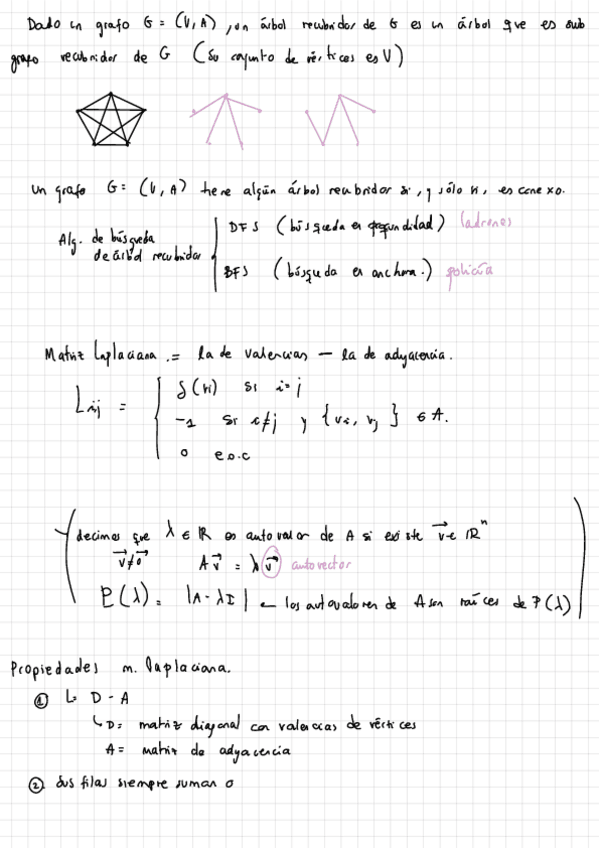 Dado un grafo G = (V, A), un árbol recubridor de G es un árbol que es sub
grafo recubridor de G (su conjunto de vértices es V)
Un grafo G = (V, A) tiene algún árbol recubridor si, y sólo si, es conexo.
Alg. de búsqueda
de árbol recubridor
DFS (búsqueda en profundidad) ladrones
BFS (búsqueda en anchura.) policía
Matriz Laplaciana := la de valencias — la de adyacencia.
Lij = δ(vi) si i=j
-1 si i≠j y {vi, vj} ∈ A.
0 e.o.c
decimos que λ ∈ ℝ es autovalor de A si existe v⃗ ∈ ℝⁿ
v⃗≠0⃗ A v⃗ = λ v⃗ autovector
P(λ) = |A - λI| ← los autovalores de A son raíces de P(λ)
Propiedades m. laplaciana.
① L = D - A
↳ D = matriz diagonal con valencias de vértices
A = matriz de adyacencia
② Sus filas siempre suman 0